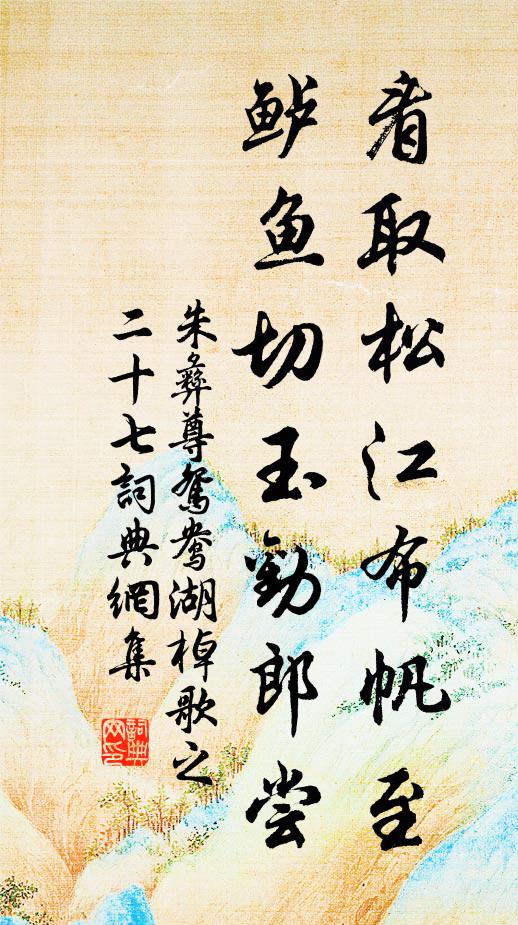 看取松江布帆至
鲈鱼切玉劝郎尝
朱彝尊鸳鸯湖棹歌之
二十七詞典網集
詞典网印